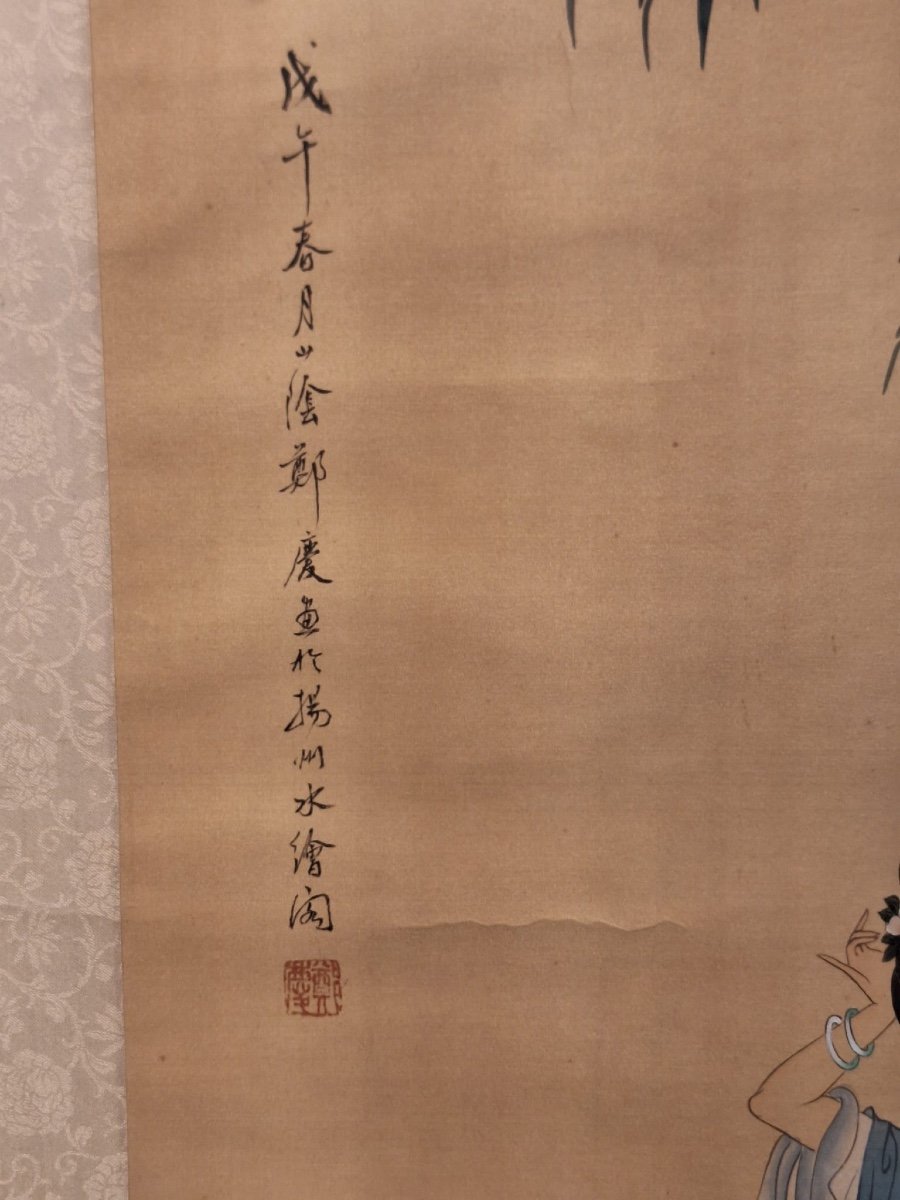 戊午春月山陰鄭慶畫於揚州水繪閣
鄭慶